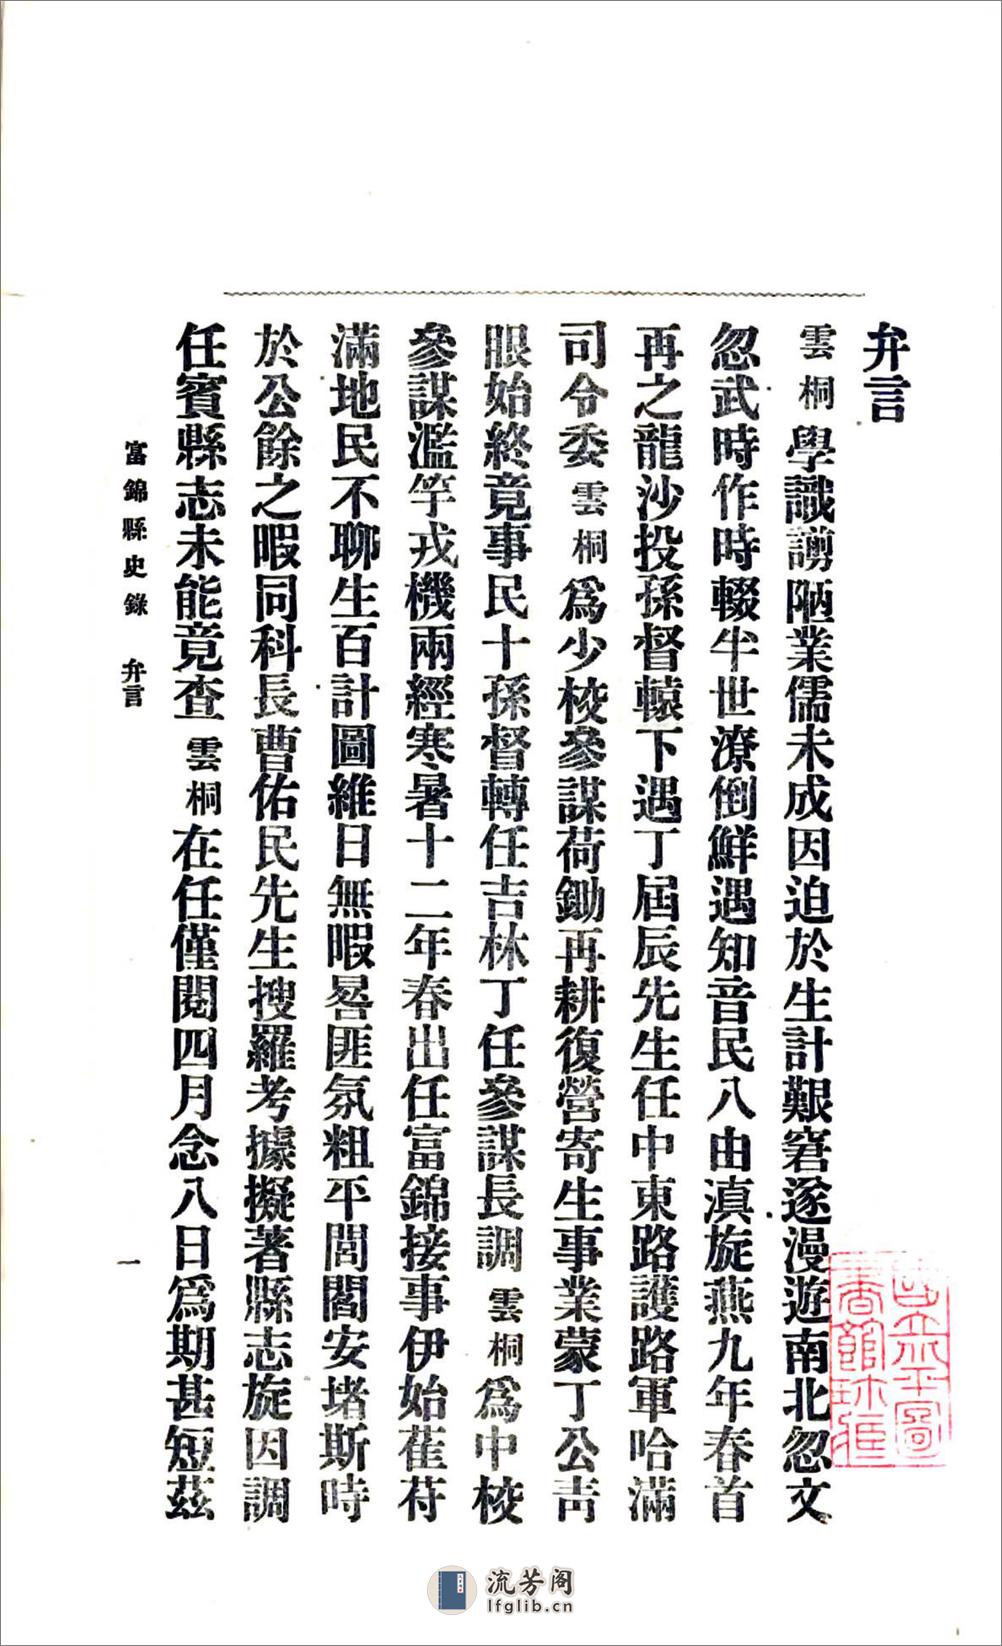 弁言
雲桐學識謭陋業儒未成因迫於生計艱窘遂漫遊南北忽文
忽武時作時輟半世潦倒鮮遇知音民八由滇旋燕九年春首
再之龍沙投孫督轅下遇丁屆辰先生任中東路護路軍哈滿
司令委雲桐爲少校參謀荷鋤再耕復營寄生事業蒙丁公靑
眼始終竟事民十孫督轉任吉林丁任參謀長調雲桐爲中校
參謀濫竽戎機兩經寒暑十二年春出任富錦接事伊始萑苻
滿地民不聊生百計圖維日無暇晷匪氛粗平閭閻安堵斯時
於公餘之暇同科長曹佑民先生搜羅考據擬著縣志旋因調
任賓縣志未能竟查雲桐在任僅閱四月念八日爲期甚短茲
富錦縣史錄 弁言 一
國立北平圖
書館珍藏
流芳阁
lfglib.cn